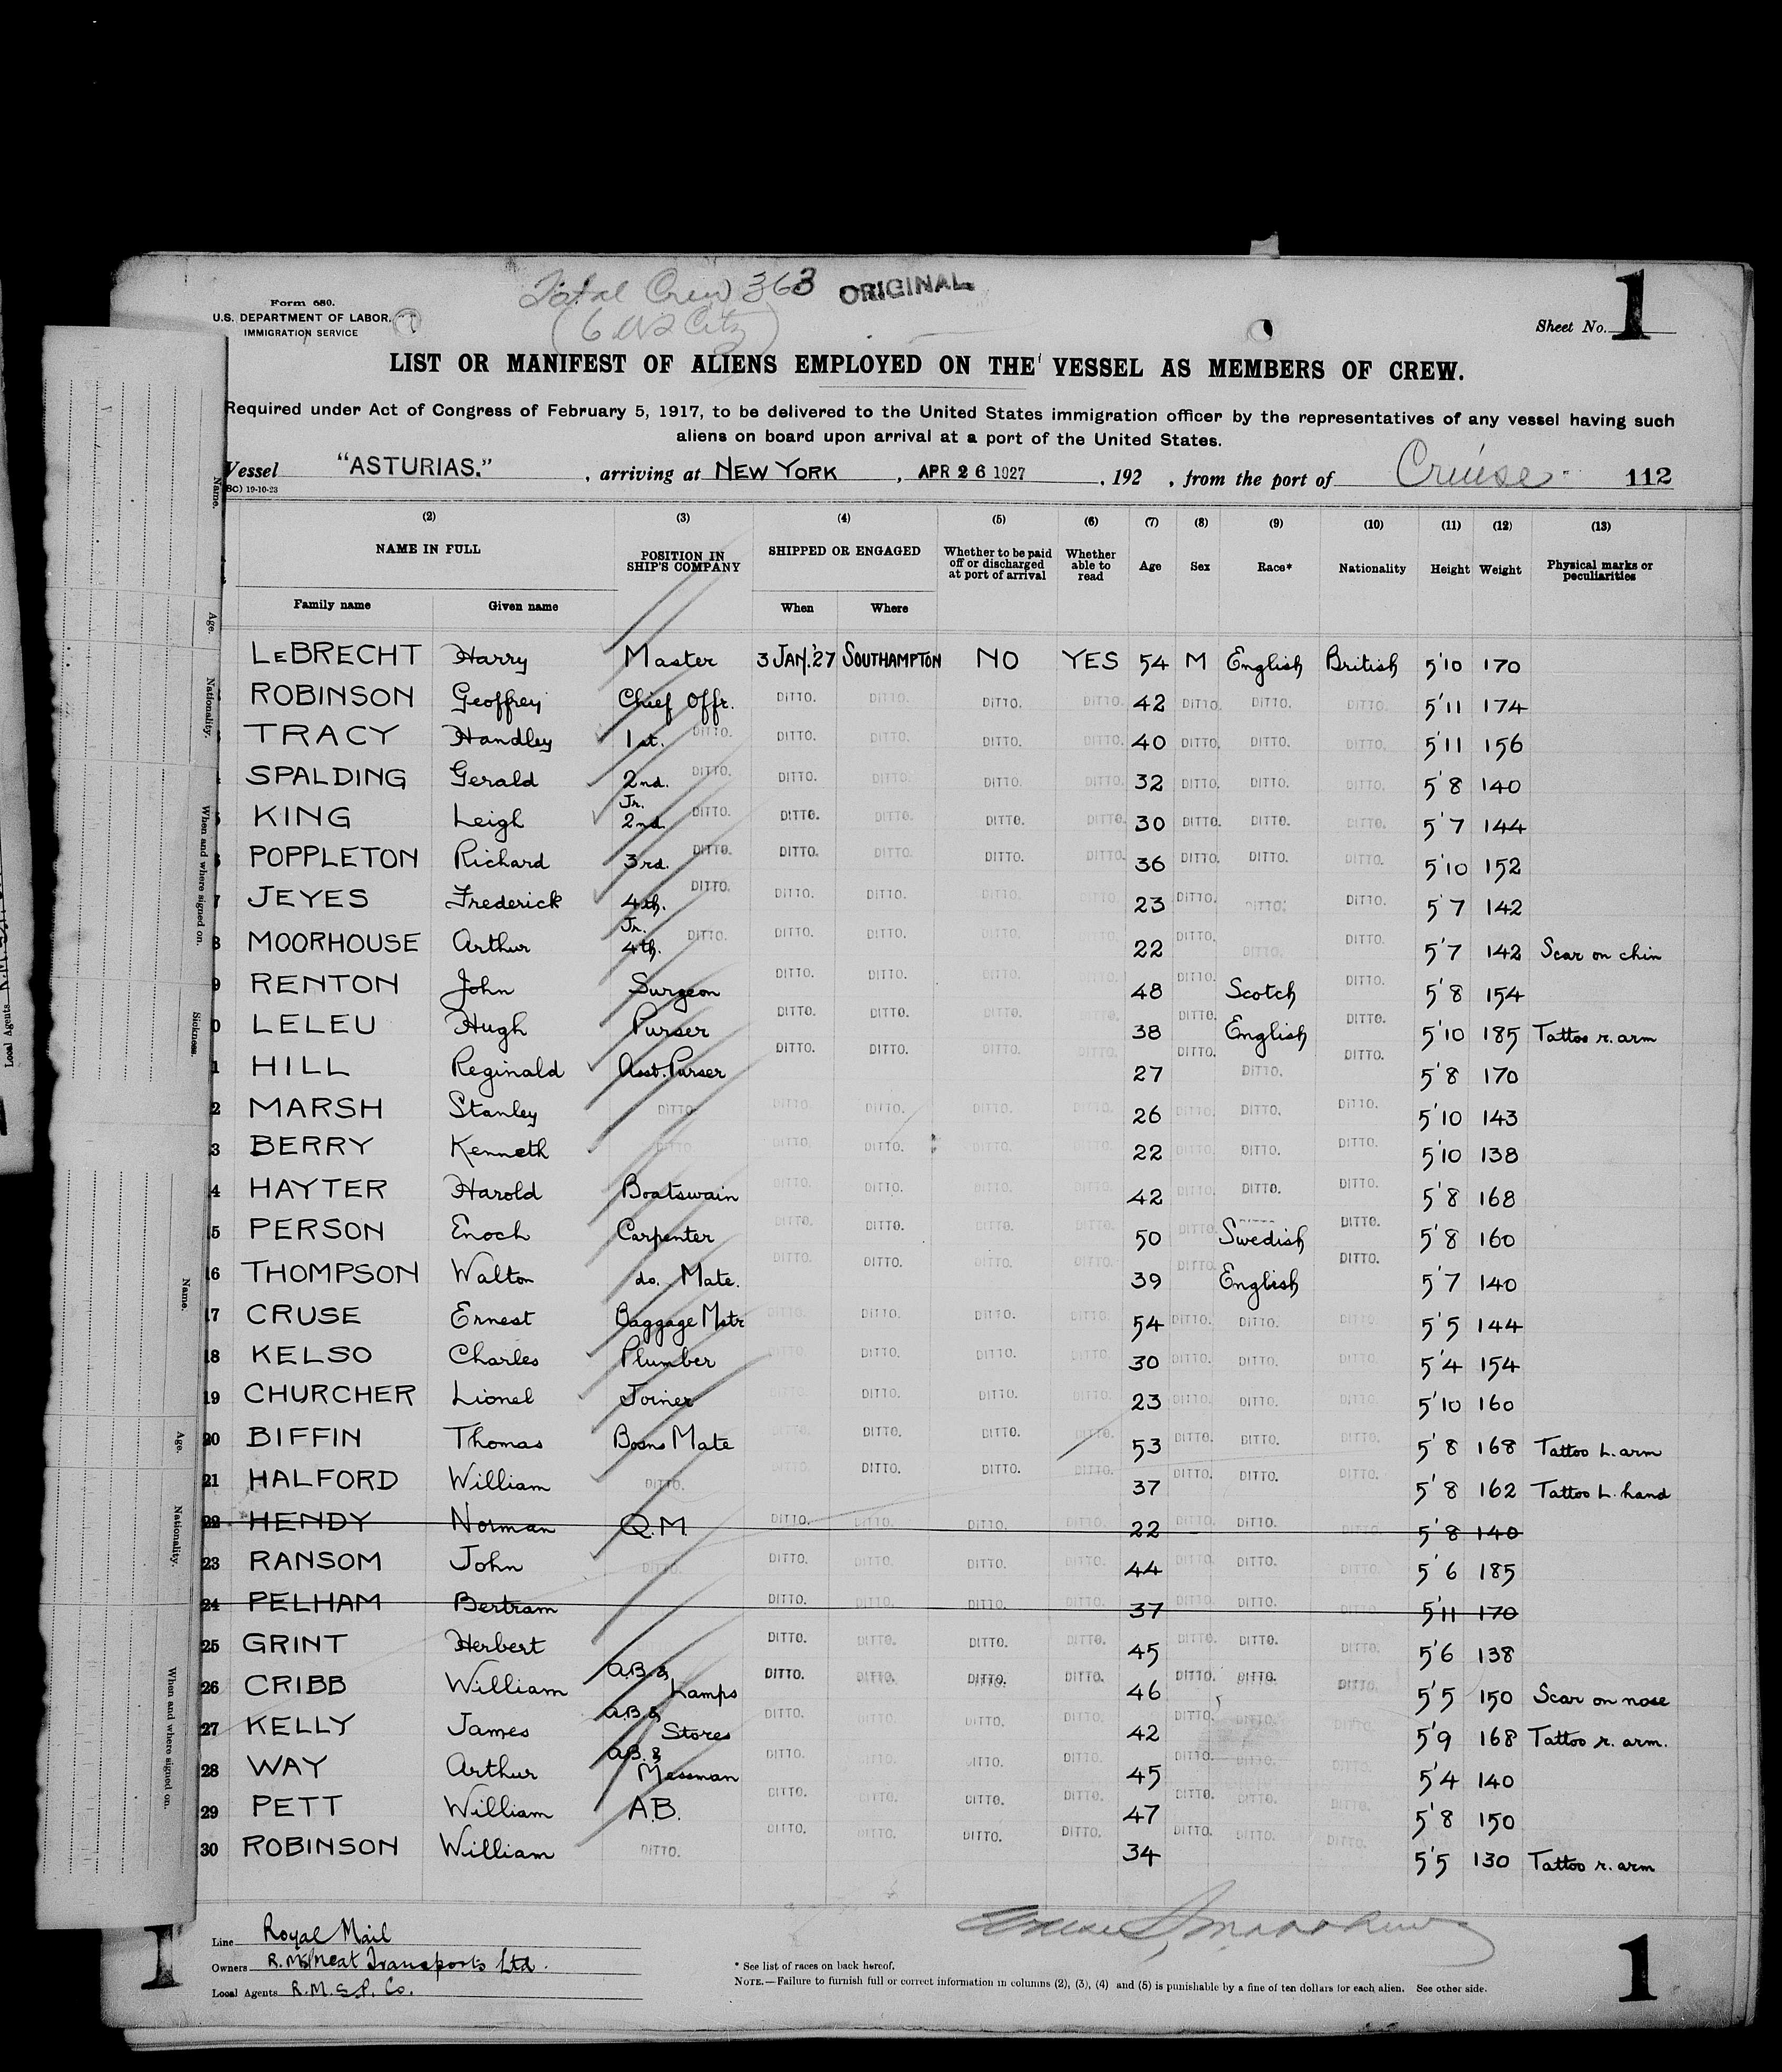 Total Crew 363 ORIGINAL
(6 US Citz)
Form 680.
U.S. DEPARTMENT OF LABOR.
IMMIGRATION SERVICE
Sheet No. 1
LIST OR MANIFEST OF ALIENS EMPLOYED ON THE VESSEL AS MEMBERS OF CREW.
Required under Act of Congress of February 5, 1917, to be delivered to the United States immigration officer by the representatives of any vessel having such
aliens on board upon arrival at a port of the United States.
Vessel "ASTURIAS.", arriving at NEW YORK, APR 26 1927, 192 , from the port of Cruise 112
19-10-23
(2) (3) (4) (5) (6) (7) (8) (9) (10) (11) (12) (13)
NAME IN FULL POSITION IN SHIP'S COMPANY SHIPPED OR ENGAGED Whether to be paid off or discharged at port of arrival Whether able to read Age Sex Race* Nationality Height Weight Physical marks or peculiarities
Family name Given name When Where
LEBRECHT Harry Master 3 JAN.'27 SOUTHAMPTON NO YES 54 M English British 5'10 170
ROBINSON Geoffrey Chief Offr. DITTO. DITTO. DITTO. DITTO. 42 DITTO. DITTO. DITTO. 5'11 174
TRACY Handley 1st. DITTO. DITTO. DITTO. DITTO. DITTO. 40 DITTO. DITTO. DITTO. 5'11 156
SPALDING Gerald 2nd. DITTO. DITTO. DITTO. DITTO. DITTO. 32 DITTO. DITTO. DITTO. 5'8 140
KING Leigh Jr. 2nd. DITTO. DITTO. DITTO. DITTO. DITTO. 30 DITTO. DITTO. DITTO. 5'7 144
POPPLETON Richard 3rd. DITTO. DITTO. DITTO. DITTO. DITTO. 36 DITTO. DITTO. DITTO. 5'10 152
7 JEYES Frederick 4th. DITTO. DITTO. DITTO. DITTO. DITTO. 23 DITTO. DITTO. DITTO. 5'7 142
8 MOORHOUSE Arthur Jr. 4th. DITTO. DITTO. DITTO. DITTO. DITTO. 22 DITTO. DITTO. DITTO. 5'7 142 Scar on chin
9 RENTON John Surgeon DITTO. DITTO. DITTO. DITTO. 48 DITTO. Scotch DITTO. 5'8 154
0 LELEU Hugh Purser DITTO. DITTO. DITTO. DITTO. 38 DITTO. English DITTO. 5'10 185 Tattoo r. arm
1 HILL Reginald Asst. Purser DITTO. DITTO. DITTO. DITTO. 27 DITTO. DITTO. DITTO. 5'8 170
2 MARSH Stanley DITTO. DITTO. DITTO. DITTO. DITTO. 26 DITTO. DITTO. DITTO. 5'10 143
3 BERRY Kenneth DITTO. DITTO. DITTO. DITTO. DITTO. 22 DITTO. DITTO. DITTO. 5'10 138
4 HAYTER Harold Boatswain DITTO. DITTO. DITTO. DITTO. 42 DITTO. DITTO. DITTO. 5'8 168
5 PERSON Enoch Carpenter DITTO. DITTO. DITTO. DITTO. 50 DITTO. Swedish DITTO. 5'8 160
16 THOMPSON Walton do. Mate. DITTO. DITTO. DITTO. DITTO. 39 DITTO. English DITTO. 5'7 140
17 CRUSE Ernest Baggage Mstr DITTO. DITTO. DITTO. DITTO. 54 DITTO. DITTO. DITTO. 5'5 144
18 KELSO Charles Plumber DITTO. DITTO. DITTO. DITTO. 30 DITTO. DITTO. DITTO. 5'4 154
19 CHURCHER Lionel Joiner DITTO. DITTO. DITTO. DITTO. 23 DITTO. DITTO. DITTO. 5'10 160
20 BIFFIN Thomas Bosns Mate DITTO. DITTO. DITTO. DITTO. 53 DITTO. DITTO. DITTO. 5'8 168 Tattoo L. arm
21 HALFORD William DITTO. DITTO. DITTO. DITTO. DITTO. 37 DITTO. DITTO. DITTO. 5'8 162 Tattoo L. hand
22 HENDY Norman Q.M. DITTO. DITTO. DITTO. DITTO. 22 DITTO. DITTO. DITTO. 5'8 140
23 RANSOM John DITTO. DITTO. DITTO. DITTO. DITTO. 44 DITTO. DITTO. DITTO. 5'6 185
24 PELHAM Bertram DITTO. DITTO. DITTO. DITTO. 37 DITTO. DITTO. DITTO. 5'11 170
25 GRINT Herbert DITTO. DITTO. DITTO. DITTO. 45 DITTO. DITTO. DITTO. 5'6 138
26 CRIBB William A.B. & Lamps DITTO. DITTO. DITTO. DITTO. 46 DITTO. DITTO. DITTO. 5'5 150 Scar on nose
27 KELLY James A.B. & Stores DITTO. DITTO. DITTO. DITTO. 42 DITTO. DITTO. DITTO. 5'9 168 Tattoo r. arm.
28 WAY Arthur A.B. & Messman DITTO. DITTO. DITTO. DITTO. 45 DITTO. DITTO. DITTO. 5'4 140
29 PETT William A.B. DITTO. DITTO. DITTO. DITTO. 47 DITTO. DITTO. DITTO. 5'8 150
30 ROBINSON William DITTO. DITTO. DITTO. DITTO. DITTO. 34 DITTO. DITTO. DITTO. 5'5 130 Tattoo r. arm
Line Royal Mail
Owners R.M. Meat Transports Ltd.
Local Agents R.M.S.P. Co.
* See list of races on back hereof.
NOTE.—Failure to furnish full or correct information in columns (2), (3), (4) and (5) is punishable by a fine of ten dollars for each alien. See other side.
1
1
Name.
Age.
Nationality.
When and where signed on.
Sickness.
Name.
Age.
Nationality.
When and where signed on.
Local Agents